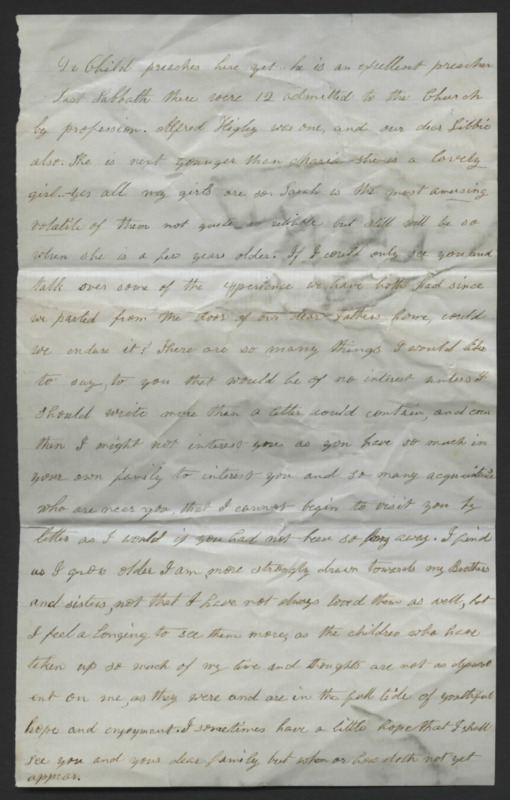 Dr Child preaches here yet. he is an excellent preacher
Last Sabbath there were 12 admitted to the Church
by profession. Alfred Higley was one, and our dear Libbie
also. She is next younger than Maria she is a lovely
girl. yes all my girls are so. Sarah is the most amusing,
volatile of them not quite so but still will be so
when she is a few years older. If I could only see you and
talk over some of the experience we have both had since
we parted from the door of our dear Fathers home, could
we endure it? There are so many things I would like
to say, to you that would be of no interest unless I
should wrote more than a letter could contain, and even
then I might not interest you as you have so much in
your own family to interest you and so many acquaintance
who are near you, that I cannot begin to visit you by
letter as I would if you had not been so long away. I find
as I grow older I am more strongly drawn towards my Brothers
and sisters, not that I have not always loved them as well, but
I feel a longing to see them more, as the children who have
taken up so much of my time and thoughts are not as depend
ent on me, as they were and are in the full tide of youthful
hope and enjoyment. I sometimes have a little hope that I shall
see you and your dear family but when or how doth not yet
appear.